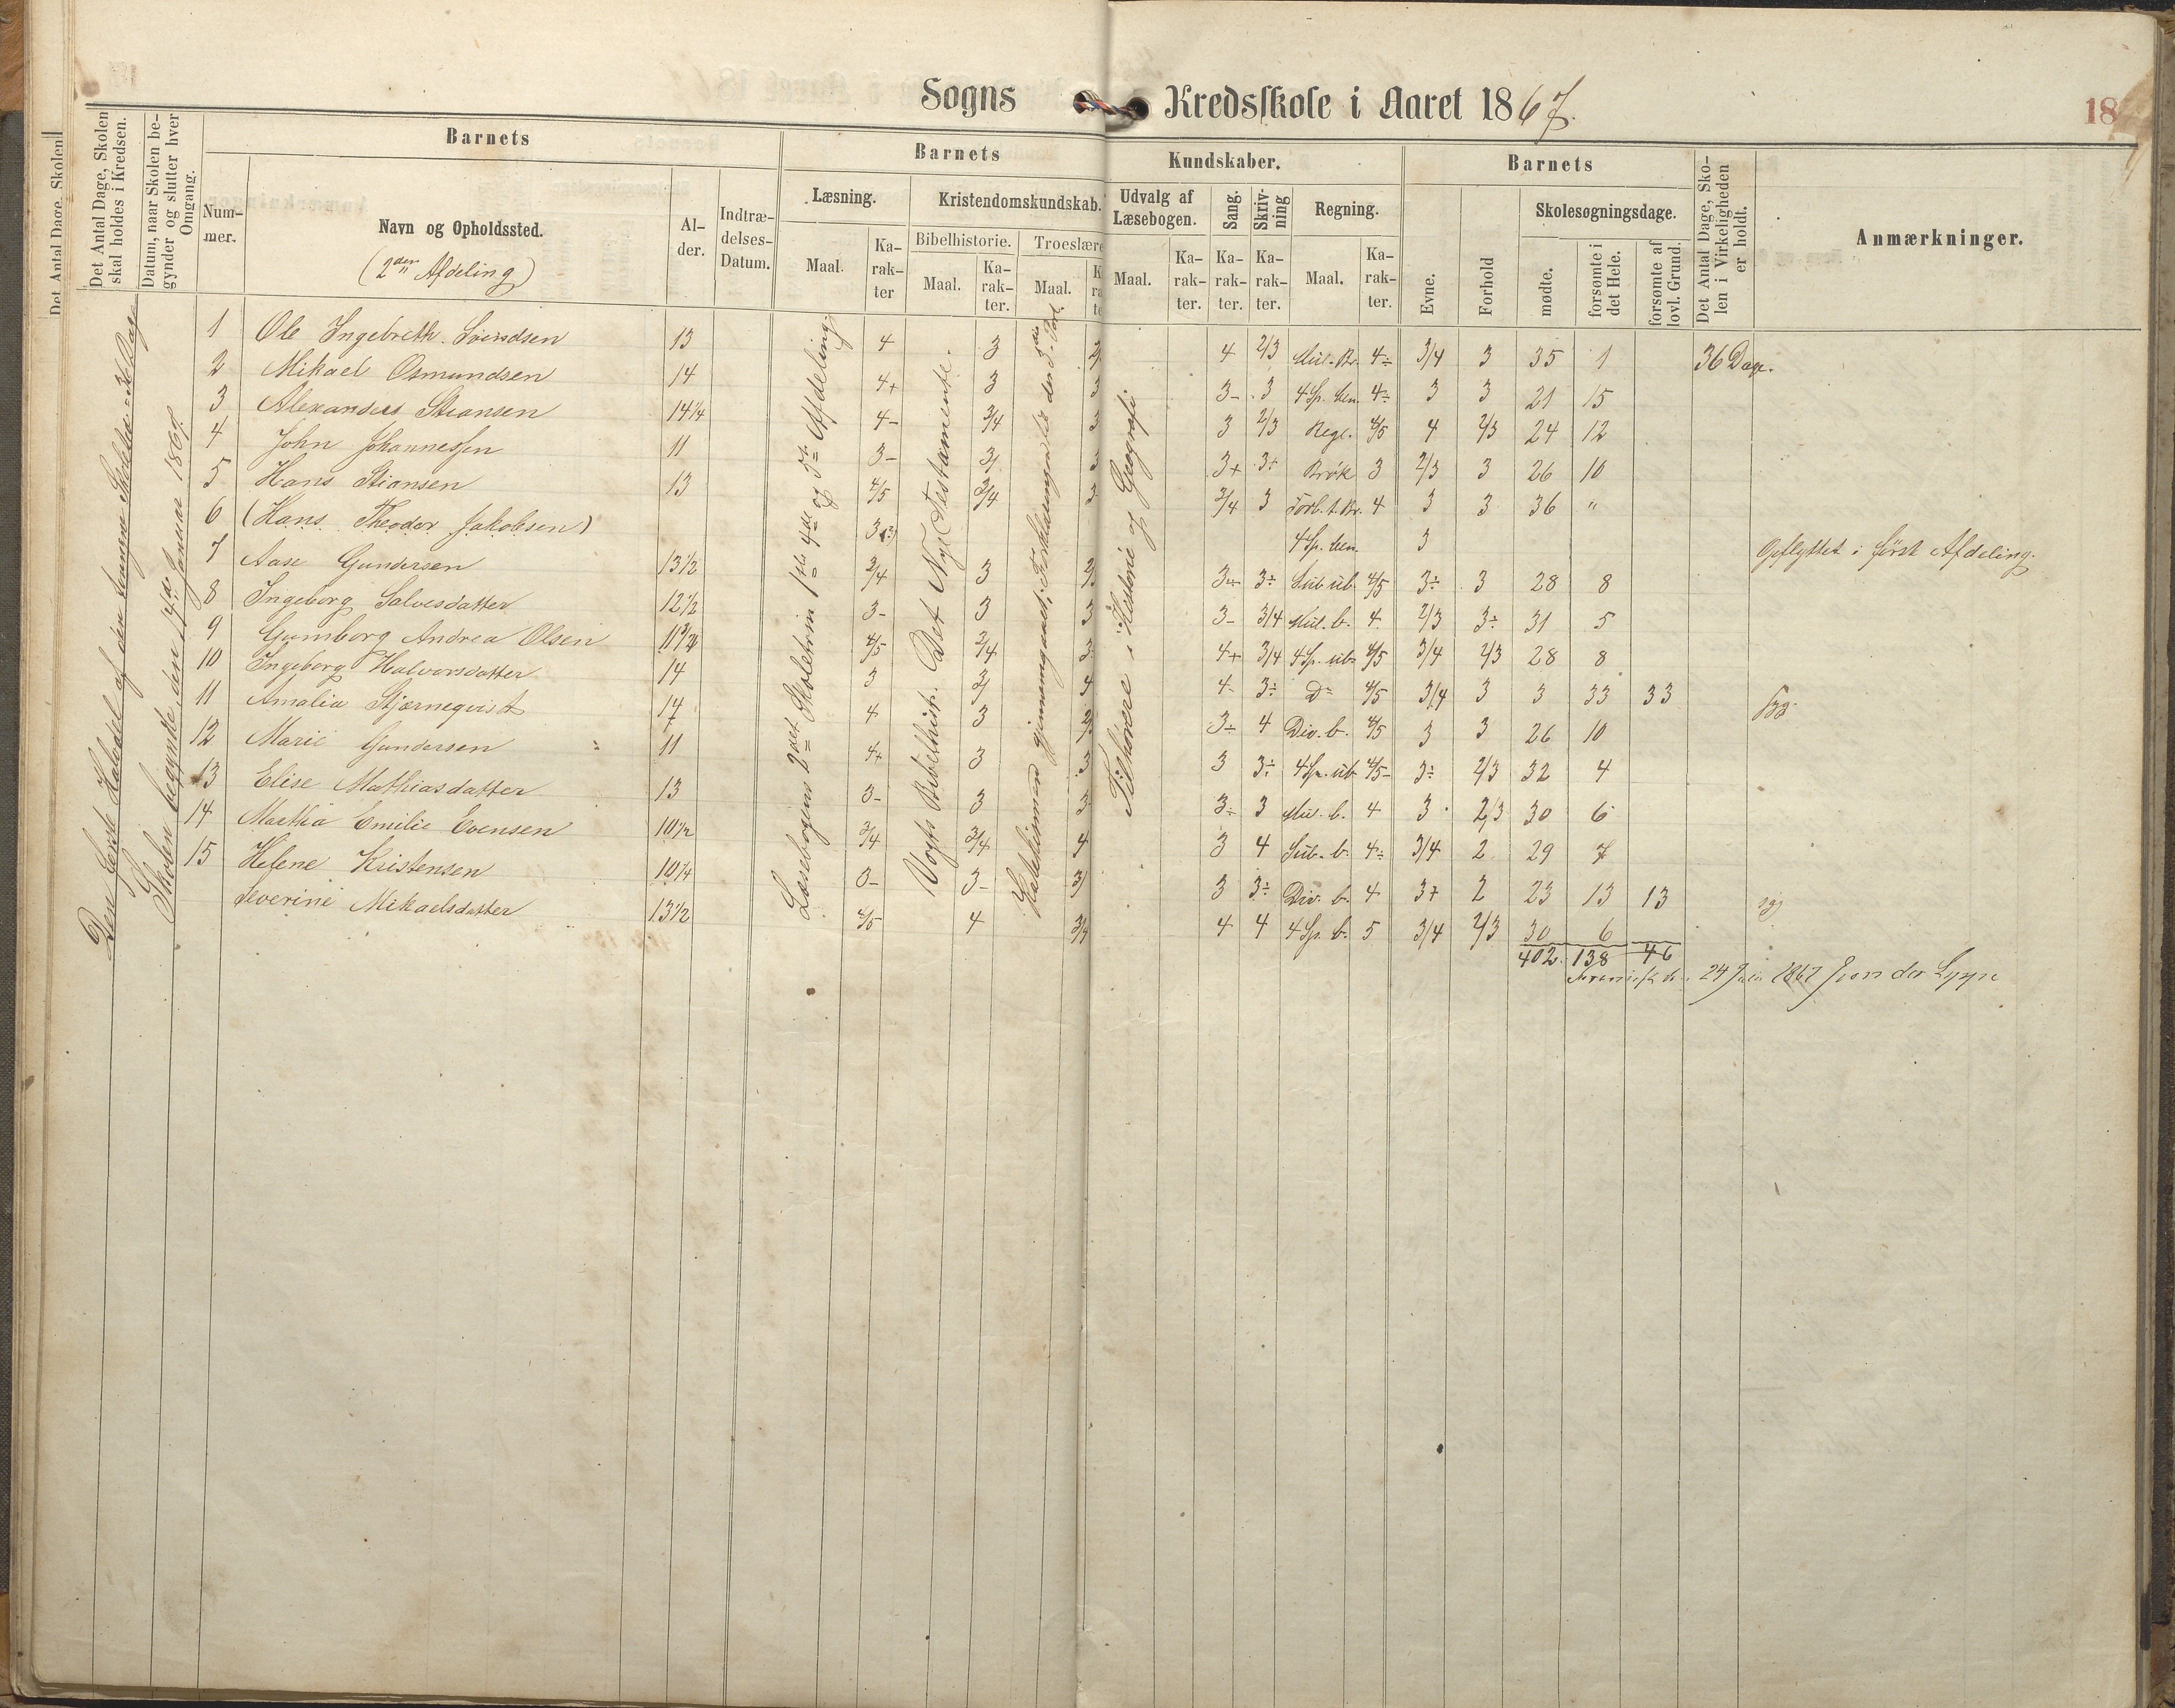 Sogns Kredsskole i Aaret 1867.
18
Det Antal Dage, Skolen
Det Antal Dage, Skolen skal holdes i Kredsen.
Datum, naar Skolen begynder og slutter hver Omgang.
Barnets
Barnets Kundskaber.
Barnets
Det Antal Dage, Skolen i Virkeligheden er holdt.
Anmærkninger.
Nummer.
Navn og Opholdssted.
(2den Afdeling)
Alder.
Indtrædelses-Datum.
Læsning.
Kristendomskundskab.
Udvalg af Læsebogen.
Sang.
Skrivning
Regning.
Evne.
Forhold
Skolesøgningsdage.
Maal.
Karakter
Bibelhistorie.
Troeslære
Maal.
Karakter.
Maal.
Maal.
Karakter.
Karakter.
Karakter.
Maal.
Karakter.
mødte.
forsømte i det Hele.
forsømte af lovl. Grund.
Skolen begyndte den 14de Januar 1867.
Læsebogens 2det Skoletrin 1ste 4de og 5te Afdeling.
Vogts Bibelhist. Det Nye Testamente.
Tilhørere i Historie og Geografi.
1 Ole Ingebreth. Svendsen 13 4 3 4 2/3 Mul. Br. 4÷ 3/4 3 35 1 36 Dage.
2 Mikael Osmundsen 14 4+ 3 3 3- 3 4 Sp. ben. 4÷ 3 3 21 15
3 Alexander Stiansen 14 1/4 4- 3/4 3 3 2/3 Regl. 4/5 4 2/3 24 12
4 John Johannessen 11 3- 3/ 3 3+ 3+ Brøk 3 2/3 3 26 10
5 Hans Stiansen 13 4/5 3/4 3 3/4 3 Forb. t. Br. 4 3 3 36 "
6 (Hans Theodor Jakobsen) 4 Sp. ben. 3 Opflyttet i först Afdeling.
7 Aase Gundersen 13 1/2 3/4 3 3÷ 3÷ Sub ub. 4/5 3÷ 3 28 8
8 Ingeborg Salvesdatter 12 1/2 3- 3 3 3- 3/4 Mul. b. 4 2/3 3÷ 31 5
9 Gumborg Andrea Olsen 4/5 3/4 3 4+ 3/4 4 Sp. ub 4/5 3/4 2/3 28 8
10 Ingeborg Halvorsdatter 14 3 3/ 4 4- 3÷ D= 4/5 3/4 3 3 33 33
11 Amalia Stjærneqvist 14 4 3 3÷ 4 Div. b. 4/5 3 3 26 10
12 Marie Gundersen 11 4+ 3 3 3 3÷ 4 Sp. ub 4/5- 3÷ 2/3 32 4
13 Elise Mathiasdatter 13 3- 3 3 3÷ 3 Mul. b. 4 3 2/3 30 6
14 Marthia Emilie Evensen 10 1/2 3/4 3/4 4 3 4 Sub. b. 4÷ 3/4 2 29 7
15 Helene Kristensen 10 1/4 3- 3- 3/ 3 3÷ Div. b. 4 3+ 2 23 13 13
Severine Mikaelsdatter 13 1/2 4/5 4 3/4 4 4 4 Sp. b. 5 3/4 2/3 30 6
402. 138 46
24 Juli 1867 J von der Lippe